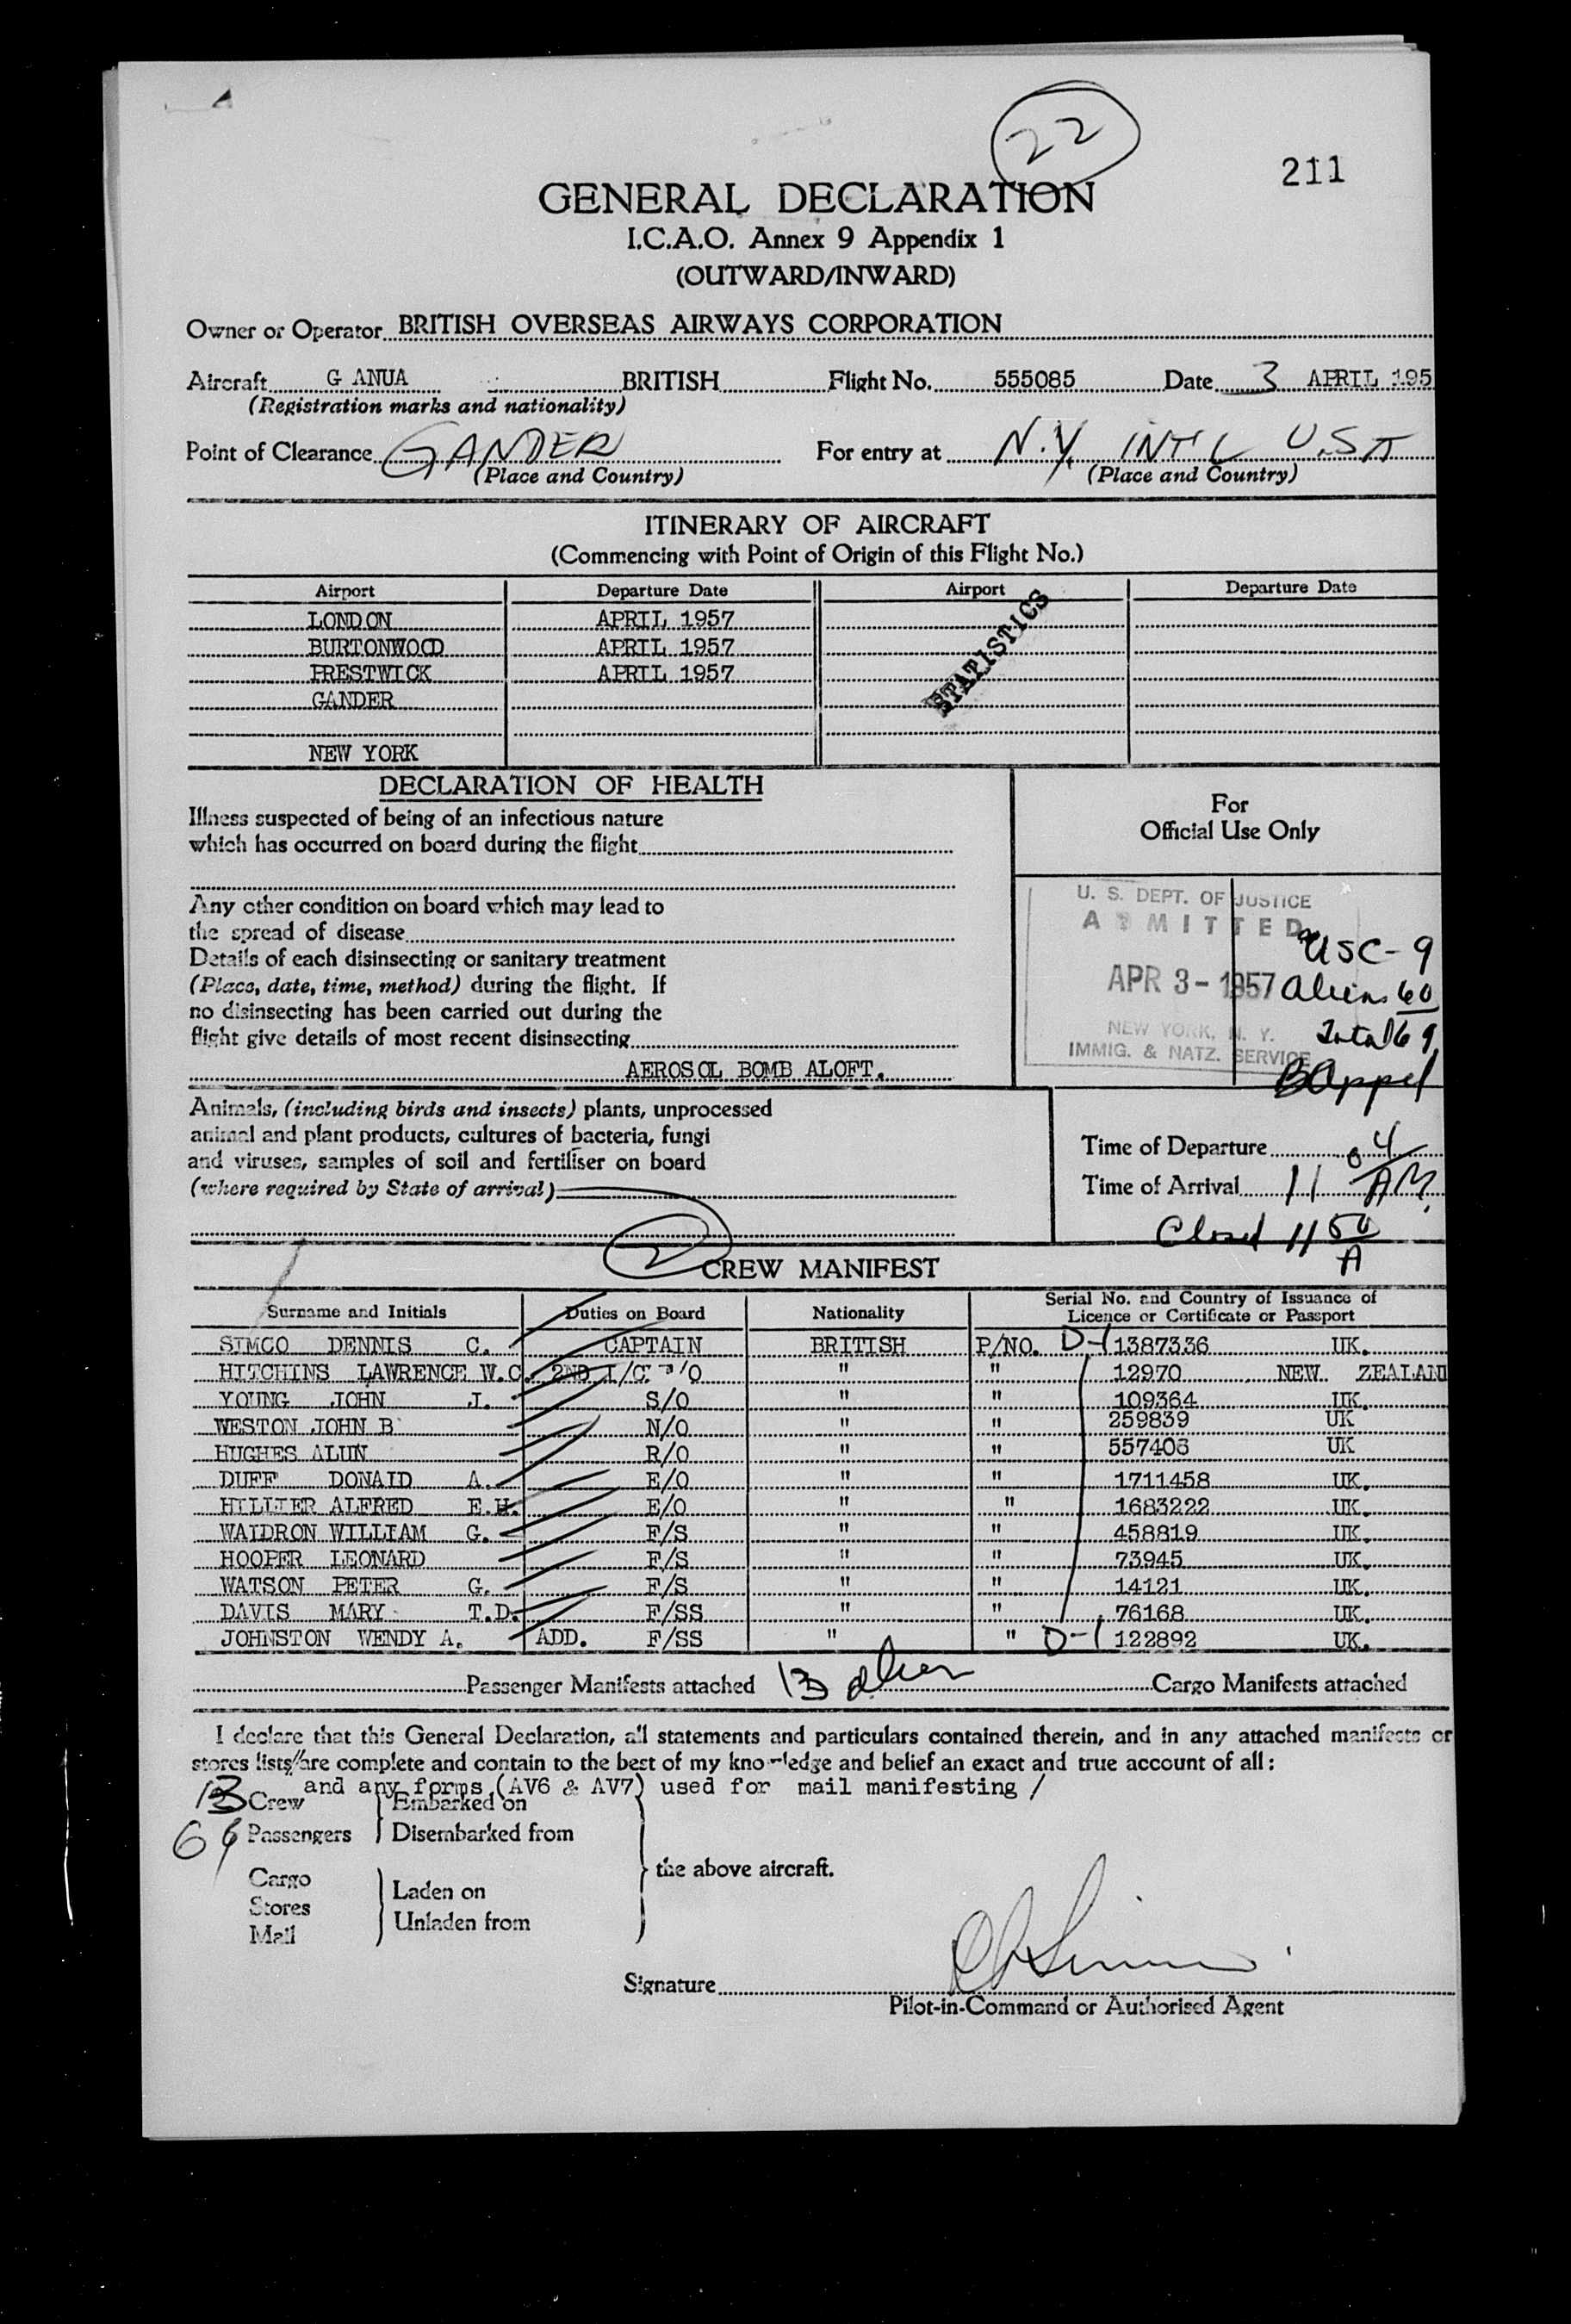 22
211
GENERAL DECLARATION
I.C.A.O. Annex 9 Appendix 1
(OUTWARD/INWARD)
Owner or Operator BRITISH OVERSEAS AIRWAYS CORPORATION
Aircraft G ANUA BRITISH Flight No. 555085 Date 3 APRIL 195
(Registration marks and nationality)
Point of Clearance GANDER For entry at N.Y. INT'L U.S.A
(Place and Country) (Place and Country)
ITINERARY OF AIRCRAFT
(Commencing with Point of Origin of this Flight No.)
Airport Departure Date Airport Departure Date
LONDON APRIL 1957
BURTONWOOD APRIL 1957
PRESTWICK APRIL 1957
GANDER
NEW YORK
STATISTICS
DECLARATION OF HEALTH
Illness suspected of being of an infectious nature
which has occurred on board during the flight
Any other condition on board which may lead to
the spread of disease
Details of each disinsecting or sanitary treatment
(Place, date, time, method) during the flight. If
no disinsecting has been carried out during the
flight give details of most recent disinsecting
AEROSOL BOMB ALOFT.
For
Official Use Only
U. S. DEPT. OF JUSTICE
ADMITTED
APR 3 - 1957
NEW YORK, N. Y.
IMMIG. & NATZ. SERVICE
USC - 9
Aliens 60
Total 69
BAppel
Animals, (including birds and insects) plants, unprocessed
animal and plant products, cultures of bacteria, fungi
and viruses, samples of soil and fertiliser on board
(where required by State of arrival)
Time of Departure
Time of Arrival 11 04 AM
Closed 11 50 A
2
CREW MANIFEST
Surname and Initials Duties on Board Nationality Serial No. and Country of Issuance of
Licence or Certificate or Passport
SIMCO DENNIS C. CAPTAIN BRITISH P/NO. D-1 1387336 UK.
HITCHINS LAWRENCE W.C. 2ND I/C F/O " " 12970 NEW ZEALAN
YOUNG JOHN J. S/O " " 109364 UK.
WESTON JOHN B N/O " " 259839 UK
HUGHES ALUN R/O " " 557403 UK
DUFF DONALD A. E/O " " 1711458 UK.
HILLIER ALFRED E.H. E/O " " 1683222 UK.
WALDRON WILLIAM G. F/S " " 458819 UK.
HOOPER LEONARD F/S " " 73945 UK.
WATSON PETER G. F/S " " 14121 UK.
DAVIS MARY T.D. F/SS " " 76168 UK.
JOHNSTON WENDY A. ADD. F/SS " " D-1 122892 UK.
Passenger Manifests attached 13 Cargo Manifests attached
I declare that this General Declaration, all statements and particulars contained therein, and in any attached manifests or
stores lists are complete and contain to the best of my knowledge and belief an exact and true account of all:
and any forms (AV6 & AV7) used for mail manifesting /
13 Crew Embarked on
69 Passengers Disembarked from
the above aircraft.
Cargo
Stores
Mail
Laden on
Unladen from
Signature
Pilot-in-Command or Authorised Agent